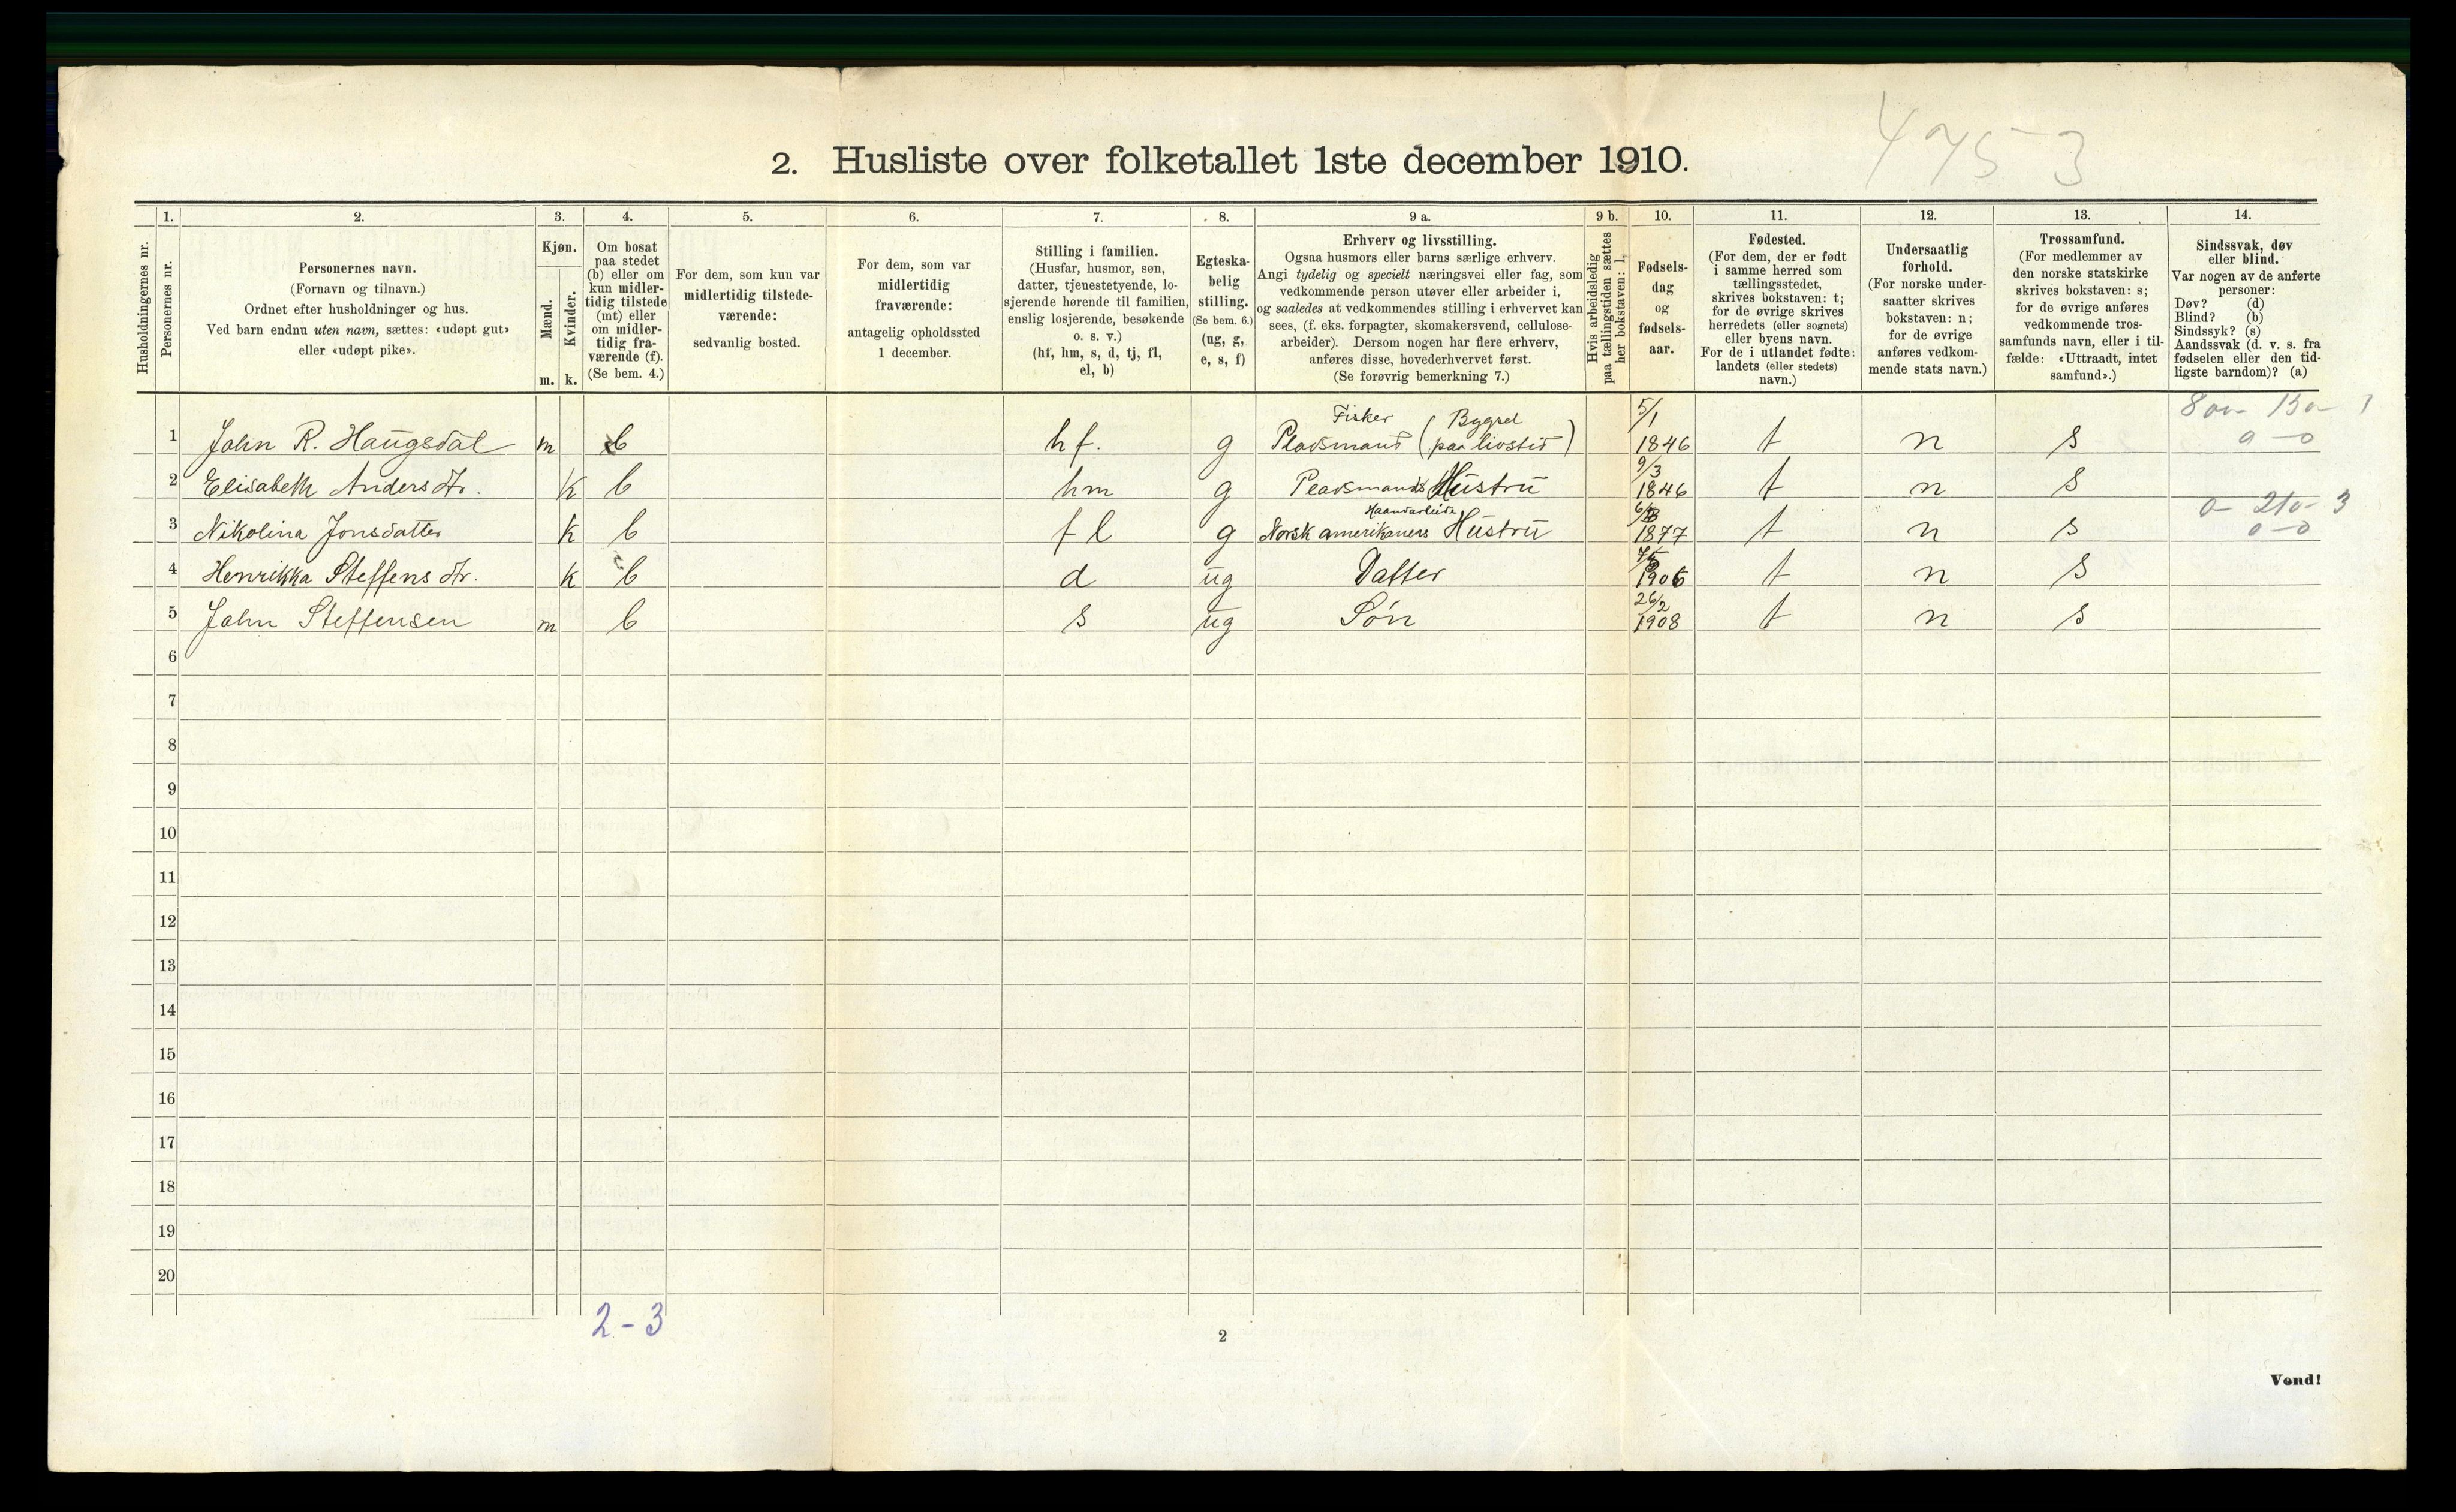 4753
2. Husliste over folketallet 1ste december 1910.
Husholdningernes nr.
1.
Personernes nr.
2.
Personernes navn.
(Fornavn og tilnavn.)
Ordnet efter husholdninger og hus.
Ved barn endnu uten navn, sættes: «udøpt gut»
eller «udøpt pike».
3.
Kjøn.
Mænd.
Kvinder.
m. k.
4.
Om bosat
paa stedet
(b) eller om
kun midler-
tidig tilstede
(mt) eller
om midler-
tidig fra-
værende (f).
(Se bem. 4.)
5.
For dem, som kun var
midlertidig tilstede-
værende:
sedvanlig bosted.
6.
For dem, som var
midlertidig
fraværende:
antagelig opholdssted
1 december.
7.
Stilling i familien.
(Husfar, husmor, søn,
datter, tjenestetyende, lo-
sjerende hørende til familien,
enslig losjerende, besøkende
o. s. v.)
(hf, hm, s, d, tj, fl,
el, b)
8.
Egteska-
belig
stilling.
(Se bem. 6.)
(ug, g,
e, s, f)
9 a.
Erhverv og livsstilling.
Ogsaa husmors eller barns særlige erhverv.
Angi tydelig og specielt næringsvei eller fag, som
vedkommende person utøver eller arbeider i,
og saaledes at vedkommendes stilling i erhvervet kan
sees, (f. eks. forpagter, skomakersvend, cellulose-
arbeider). Dersom nogen har flere erhverv,
anføres disse, hovederhvervet først.
(Se forøvrig bemerkning 7.)
9 b.
Hvis arbeidsledig
paa tællingstiden sættes
her bokstaven: l.
10.
Fødsels-
dag
og
fødsels-
aar.
11.
Fødested.
(For dem, der er født
i samme herred som
tællingsstedet,
skrives bokstaven: t;
for de øvrige skrives
herredets (eller sognets)
eller byens navn.
For de i utlandet fødte:
landets (eller stedets)
navn.)
12.
Undersaatlig
forhold.
(For norske under-
saatter skrives
bokstaven: n;
for de øvrige
anføres vedkom-
mende stats navn.)
13.
Trossamfund.
(For medlemmer av
den norske statskirke
skrives bokstaven: s;
for de øvrige anføres
vedkommende tros-
samfunds navn, eller i til-
fælde: «Uttraadt, intet
samfund».)
14.
Sindssvak, døv
eller blind.
Var nogen av de anførte
personer:
Døv? (d)
Blind? (b)
Sindssyk? (s)
Aandssvak (d. v. s. fra
fødselen eller den tid-
ligste barndom)? (a)
Fisker Bygsel 5/1
1 John R. Haugsdal m b hf. g Pladsmand (paa livstid) 1846 t n s 0-0
9/3
2 Elisabeth Andersdtr. k b hm g Pladsmands Hustru 1846 t n s
Haandarbeide
3 Nikolina Jonsdatter k b fl g Norsk amerikaners Hustru 1877 t n s 0-0
4 Henrikka Steffensdtr. k b d ug Datter 1906 t n s
26/2
5 John Steffensen m b s ug Søn 1908 t n s
6
7
8
9
10
11
12
13
14
15
16
17
18
19
20
2-3
2
Vend!